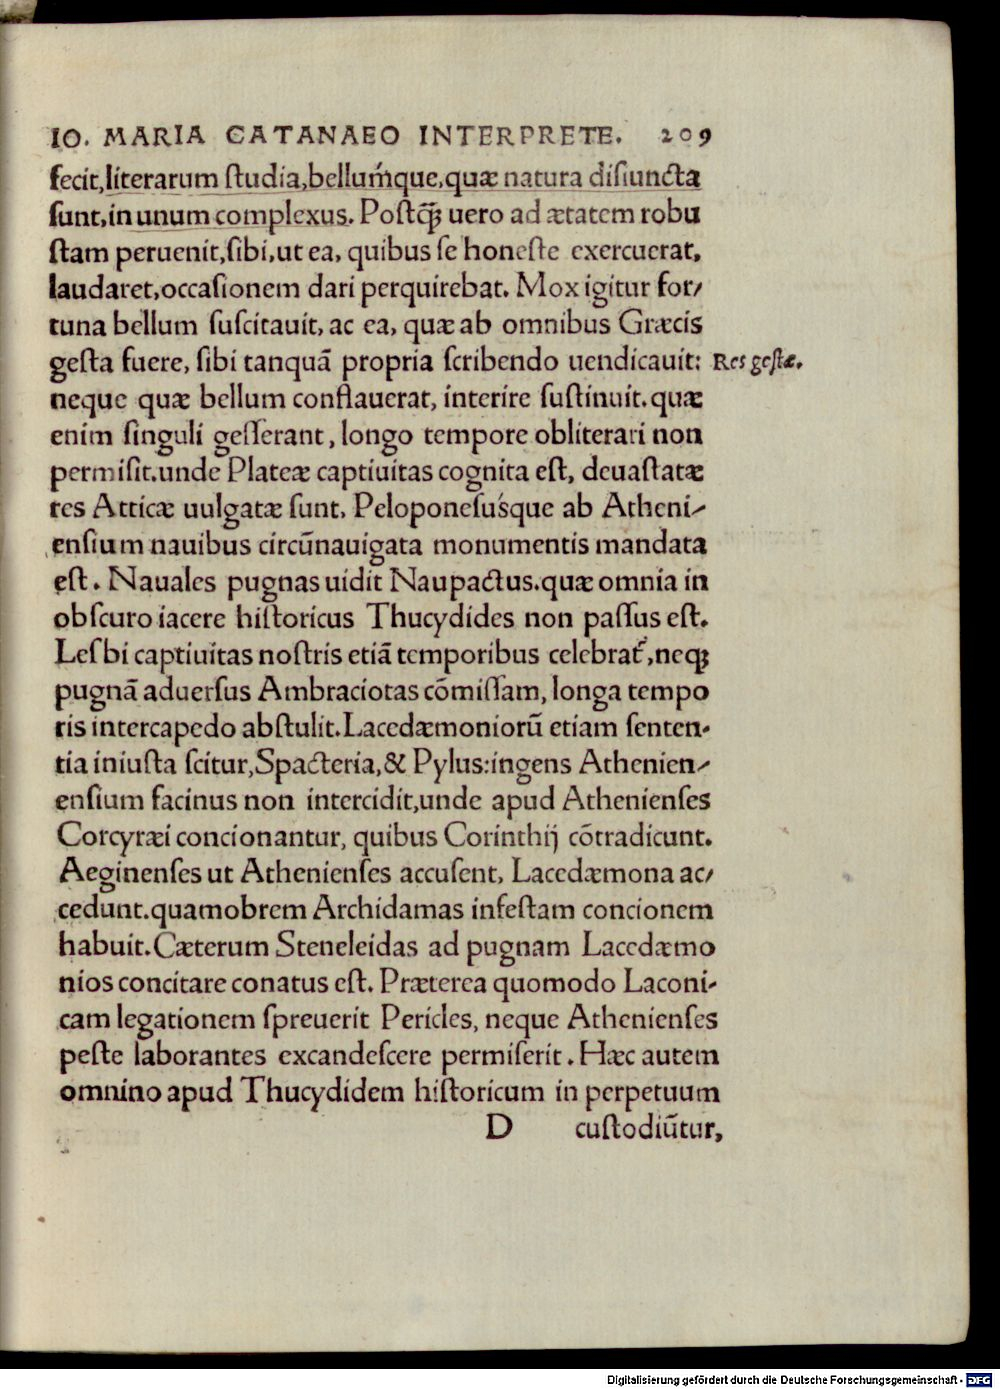 IO. MARIA CATANAEO INTERPRETE. 209
fecit,literarum ſtudia,bellum´que,quæ natura diſiuncta
ſunt,in unum complexus. Poſtꝗ̃ uero ad ætatem robu
ſtam peruenit,ſibi,ut ea, quibus ſe honeſte exercuerat,
laudaret,occaſionem dari perquirebat. Mox igitur for/
tuna bellum ſuſcitauit, ac ea, quæ ab omnibus Græcis
geſta fuere, ſibi tanquã propria ſcribendo uendicauit: Res geſtæ.
neque quæ bellum conflauerat, interire ſuſtinuit. quæ
enim ſinguli geſſerant, longo tempore obliterari non
permiſit.unde Plateæ captiuitas cognita eſt, deuaſtatæ
res Atticæ uulgatæ ſunt. Peloponeſus´que ab Atheni/
enſium nauibus circũnauigata monumentis mandata
eſt. Nauales pugnas uidit Naupactus.quæ omnia in
obſcuro iacere hiſtoricus Thucydides non paſſus eſt.
Leſbi captiuitas noſtris etiã temporibus celebrat᷑,neqꝫ
pugnã aduerſus Ambraciotas cõmiſſam, longa tempo
ris intercapedo abſtulit.Lacedæmoniorũ etiam ſenten-
tia iniuſta ſcitur,Spacteria,& Pylus:ingens Athenien/
enſium facinus non intercidit,unde apud Athenienſes
Corcyræi concionantur, quibus Corinthij cõtradicunt.
Aeginenſes ut Athenienſes accuſent, Lacedæmona ac/
cedunt.quamobrem Archidamas infeſtam concionem
habuit.Cæterum Steneleidas ad pugnam Lacedæmo
nios concitare conatus eſt. Præterea quomodo Laconi-
cam legationem ſpreuerit Pericles, neque Athenienſes
peſte laborantes excandeſcere permiſerit. Hæc autem
omnino apud Thucydidem hiſtoricum in perpetuum
D custodiũtur,
Digitalisierung gefördert durch die Deutsche Forschungsgemeinschaft - DFG